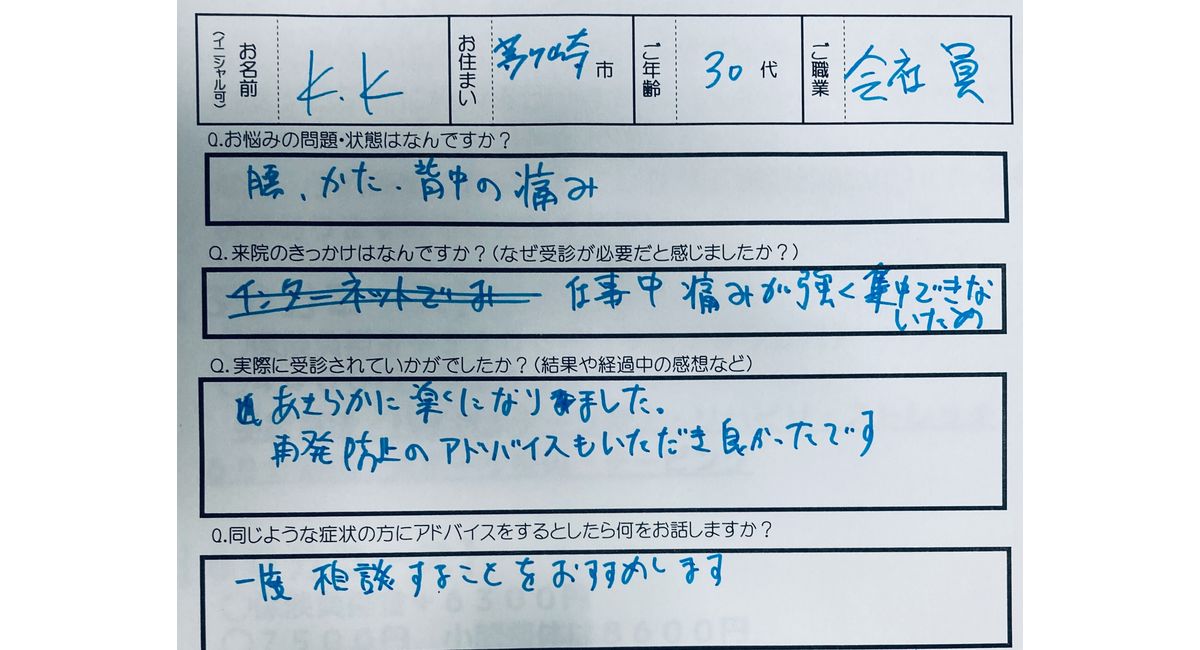 お名前(イニシャル可) K.K お住まい 茅ヶ崎市 ご年齢 30代 ご職業 会社員
Q.お悩みの問題・状態はなんですか？
腰、かた・背中の痛み
Q.来院のきっかけはなんですか？(なぜ受診が必要だと感じましたか？)
インターネットで 仕事中 痛みが強く集中できな
いため
Q.実際に受診されていかがでしたか？(結果や経過中の感想など)
あきらかに楽になりました。
再発防止のアドバイスもいただき良かったです
Q.同じような症状の方にアドバイスをするとしたら何をお話しますか？
一度 相談することをおすすめします
7500円 8600円